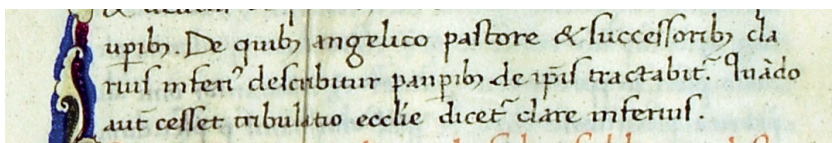 uꝑibꝫ. De quibꝫ angelico pastore & successoribꝫ cla
rius inferiꝰ describitur de ip̄is tractabit᷑. Quãdo
aut̄ cesset tribulatio eccl̄ie dicet᷑ clare inferius.